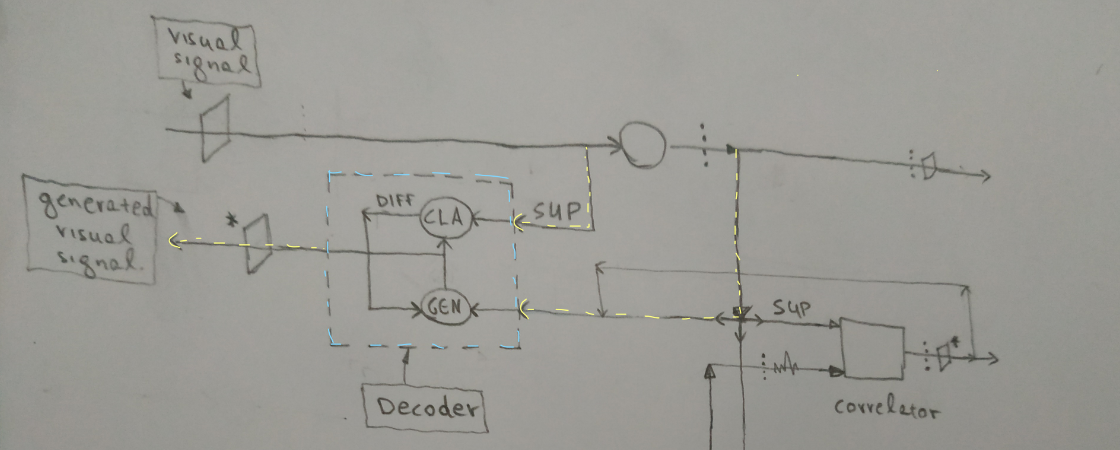 visual
signal
generated
visual
signal.
*
DIFF
CLA
SUP
GEN
SUP
*
Decoder
correlator